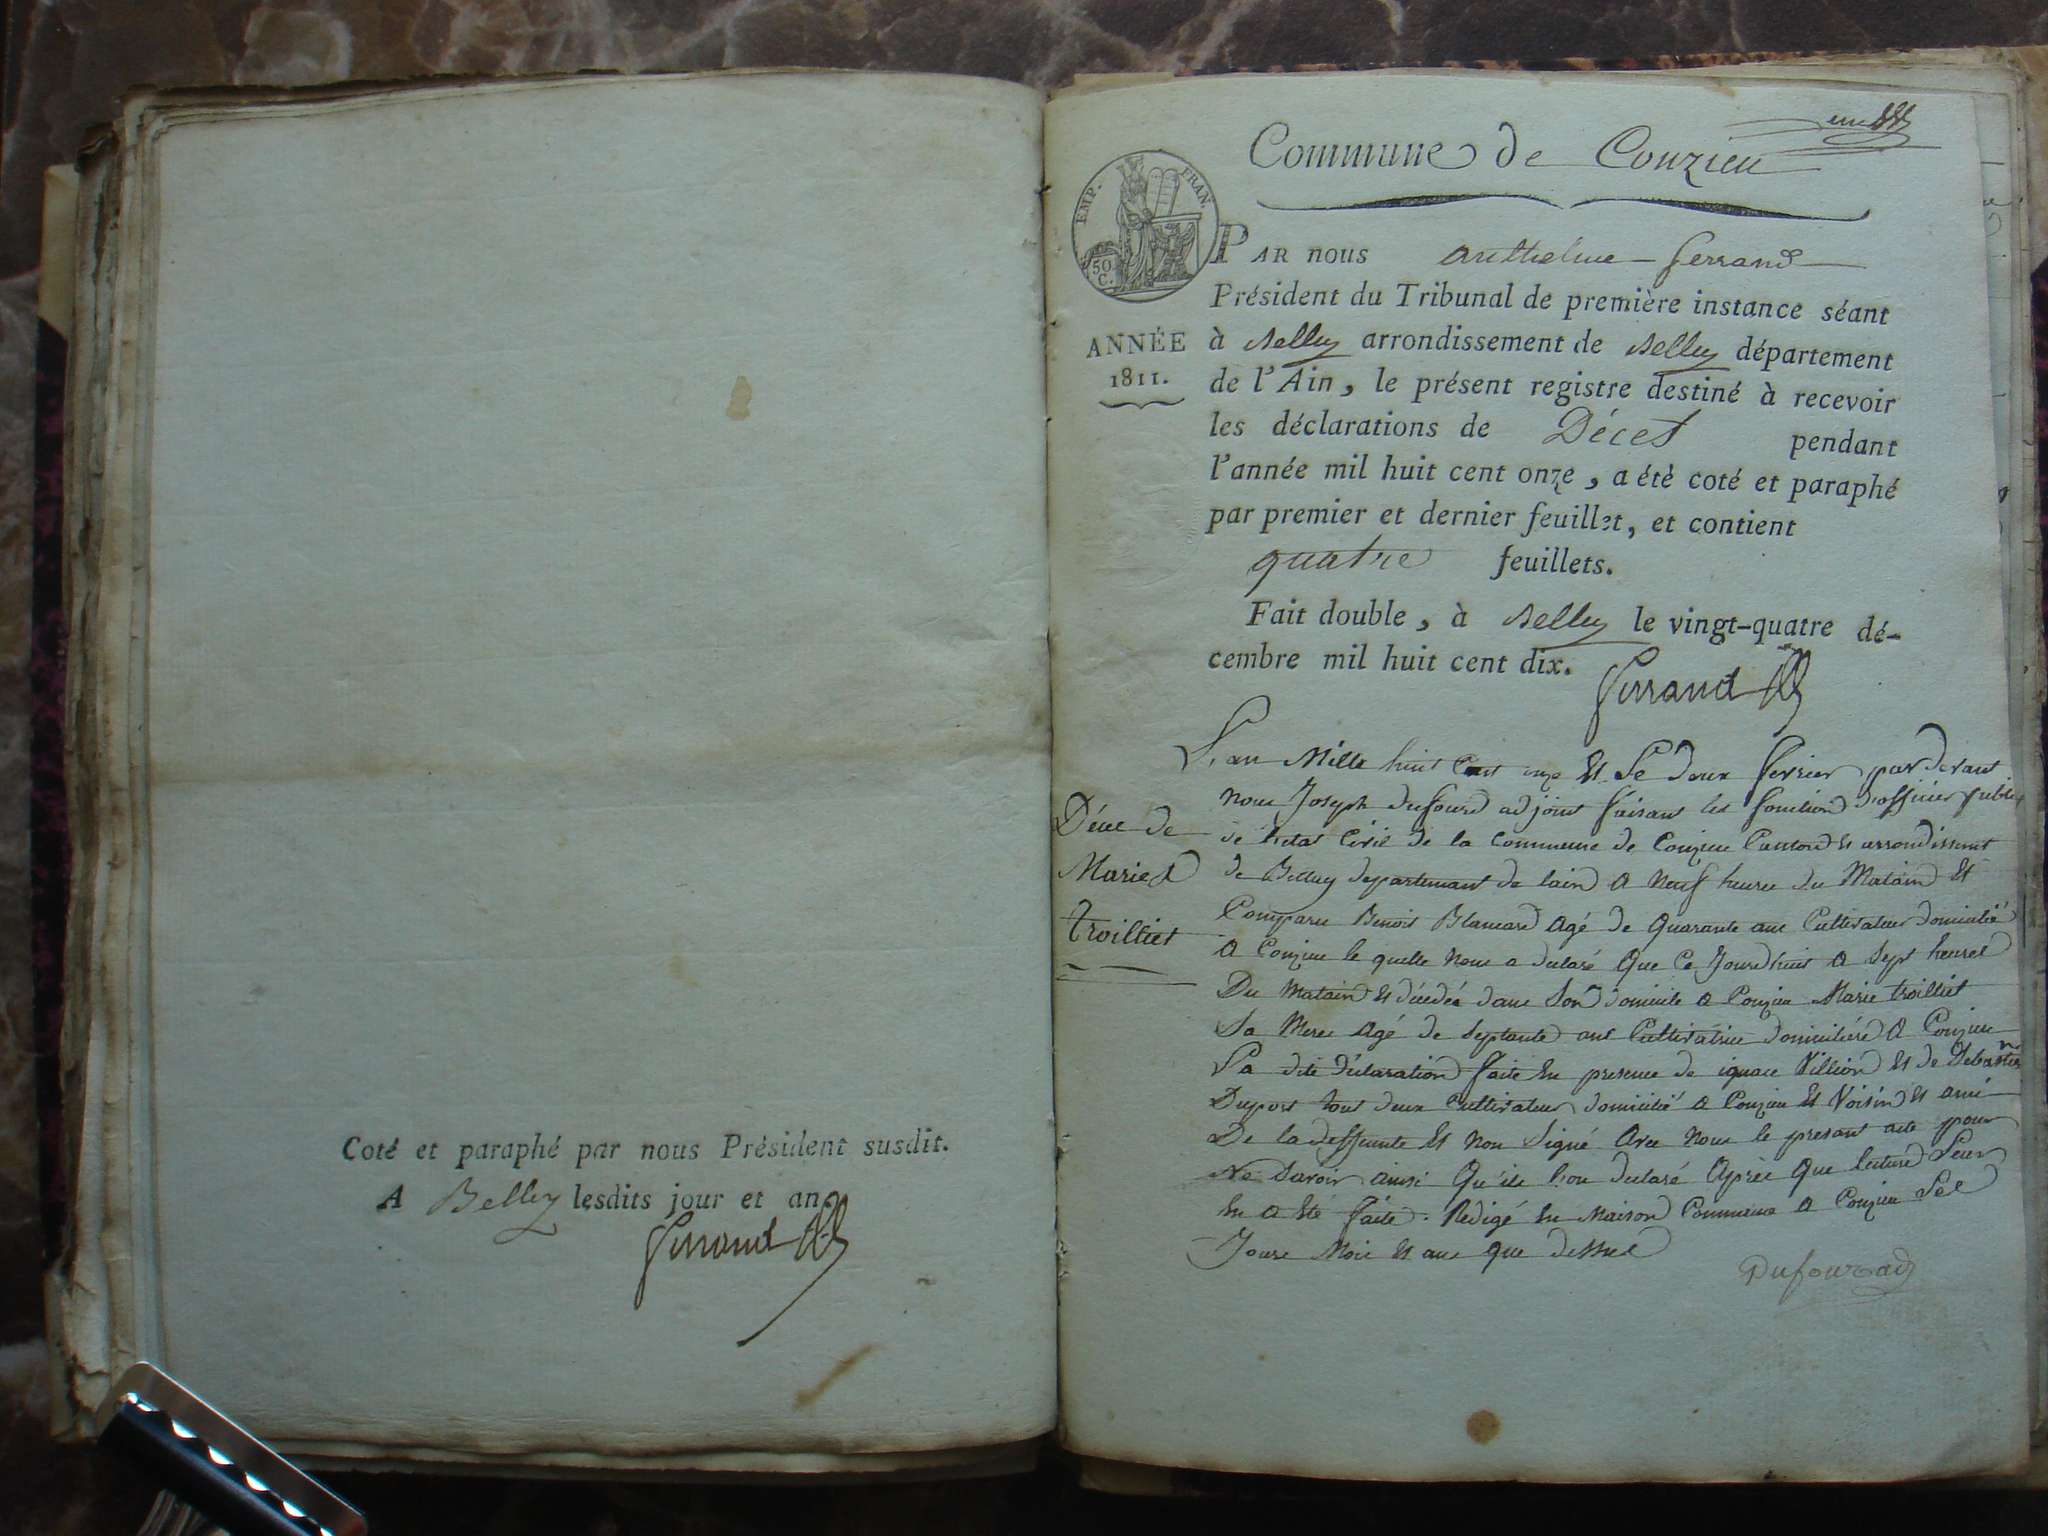 Coté et paraphé par nous Président susdit.
A Belley lesdits jour et an.
Ferrand
une
Commune de Conzieu
EMP. FRAN.
50 C.
ANNÉE
1811.
PAR nous anthelme ferrand
Président du Tribunal de première instance séant
à Belley arrondissement de Belley département
de l'Ain, le présent registre destiné à recevoir
les déclarations de Décès pendant
l'année mil huit cent onze, a étè coté et paraphé
par premier et dernier feuillet, et contient
quatre feuillets.
Fait double, à Belley le vingt-quatre dé-
cembre mil huit cent dix.
Ferrand
Décè de
Marie
troilliet
L'an Mille huit Cent onze Et Le deux fevrier par devant
nous Joseph dufourd adjoint faisant les fonction d'officier public
de letat Civil de la Commune de Conzieu Canton Et arrondissement
de Belley departement de lain a neuf heures du Matain Et
Comparu Benoit Blancard agé de quarante ans Cultivateur domicilié
a Conzieu le quelle nous a declaré que Ce Jourdhuit a Sept heures
Du Matain Et décédéé dans Son domicile a Conzieu Marie troilliet
Sa Mere agé de Septante ans Cultivatrice domiciliéé a Conzieu
La dite déclaration faite En presence de ignace Billion Et de Sebastien
Duport tous deux Cultivateur domicilié a Conzieu Et Voisin Et ami
De la deffunte Et non Signé avec nous le presant acte pour
ne Savoir ainsi qu'ils lon declaré Après que lecture Leur
En a Eté faite. Redigé En Maison Commune a Conzieu Les
Jours Mois Et ans que dessus
Dufour adj